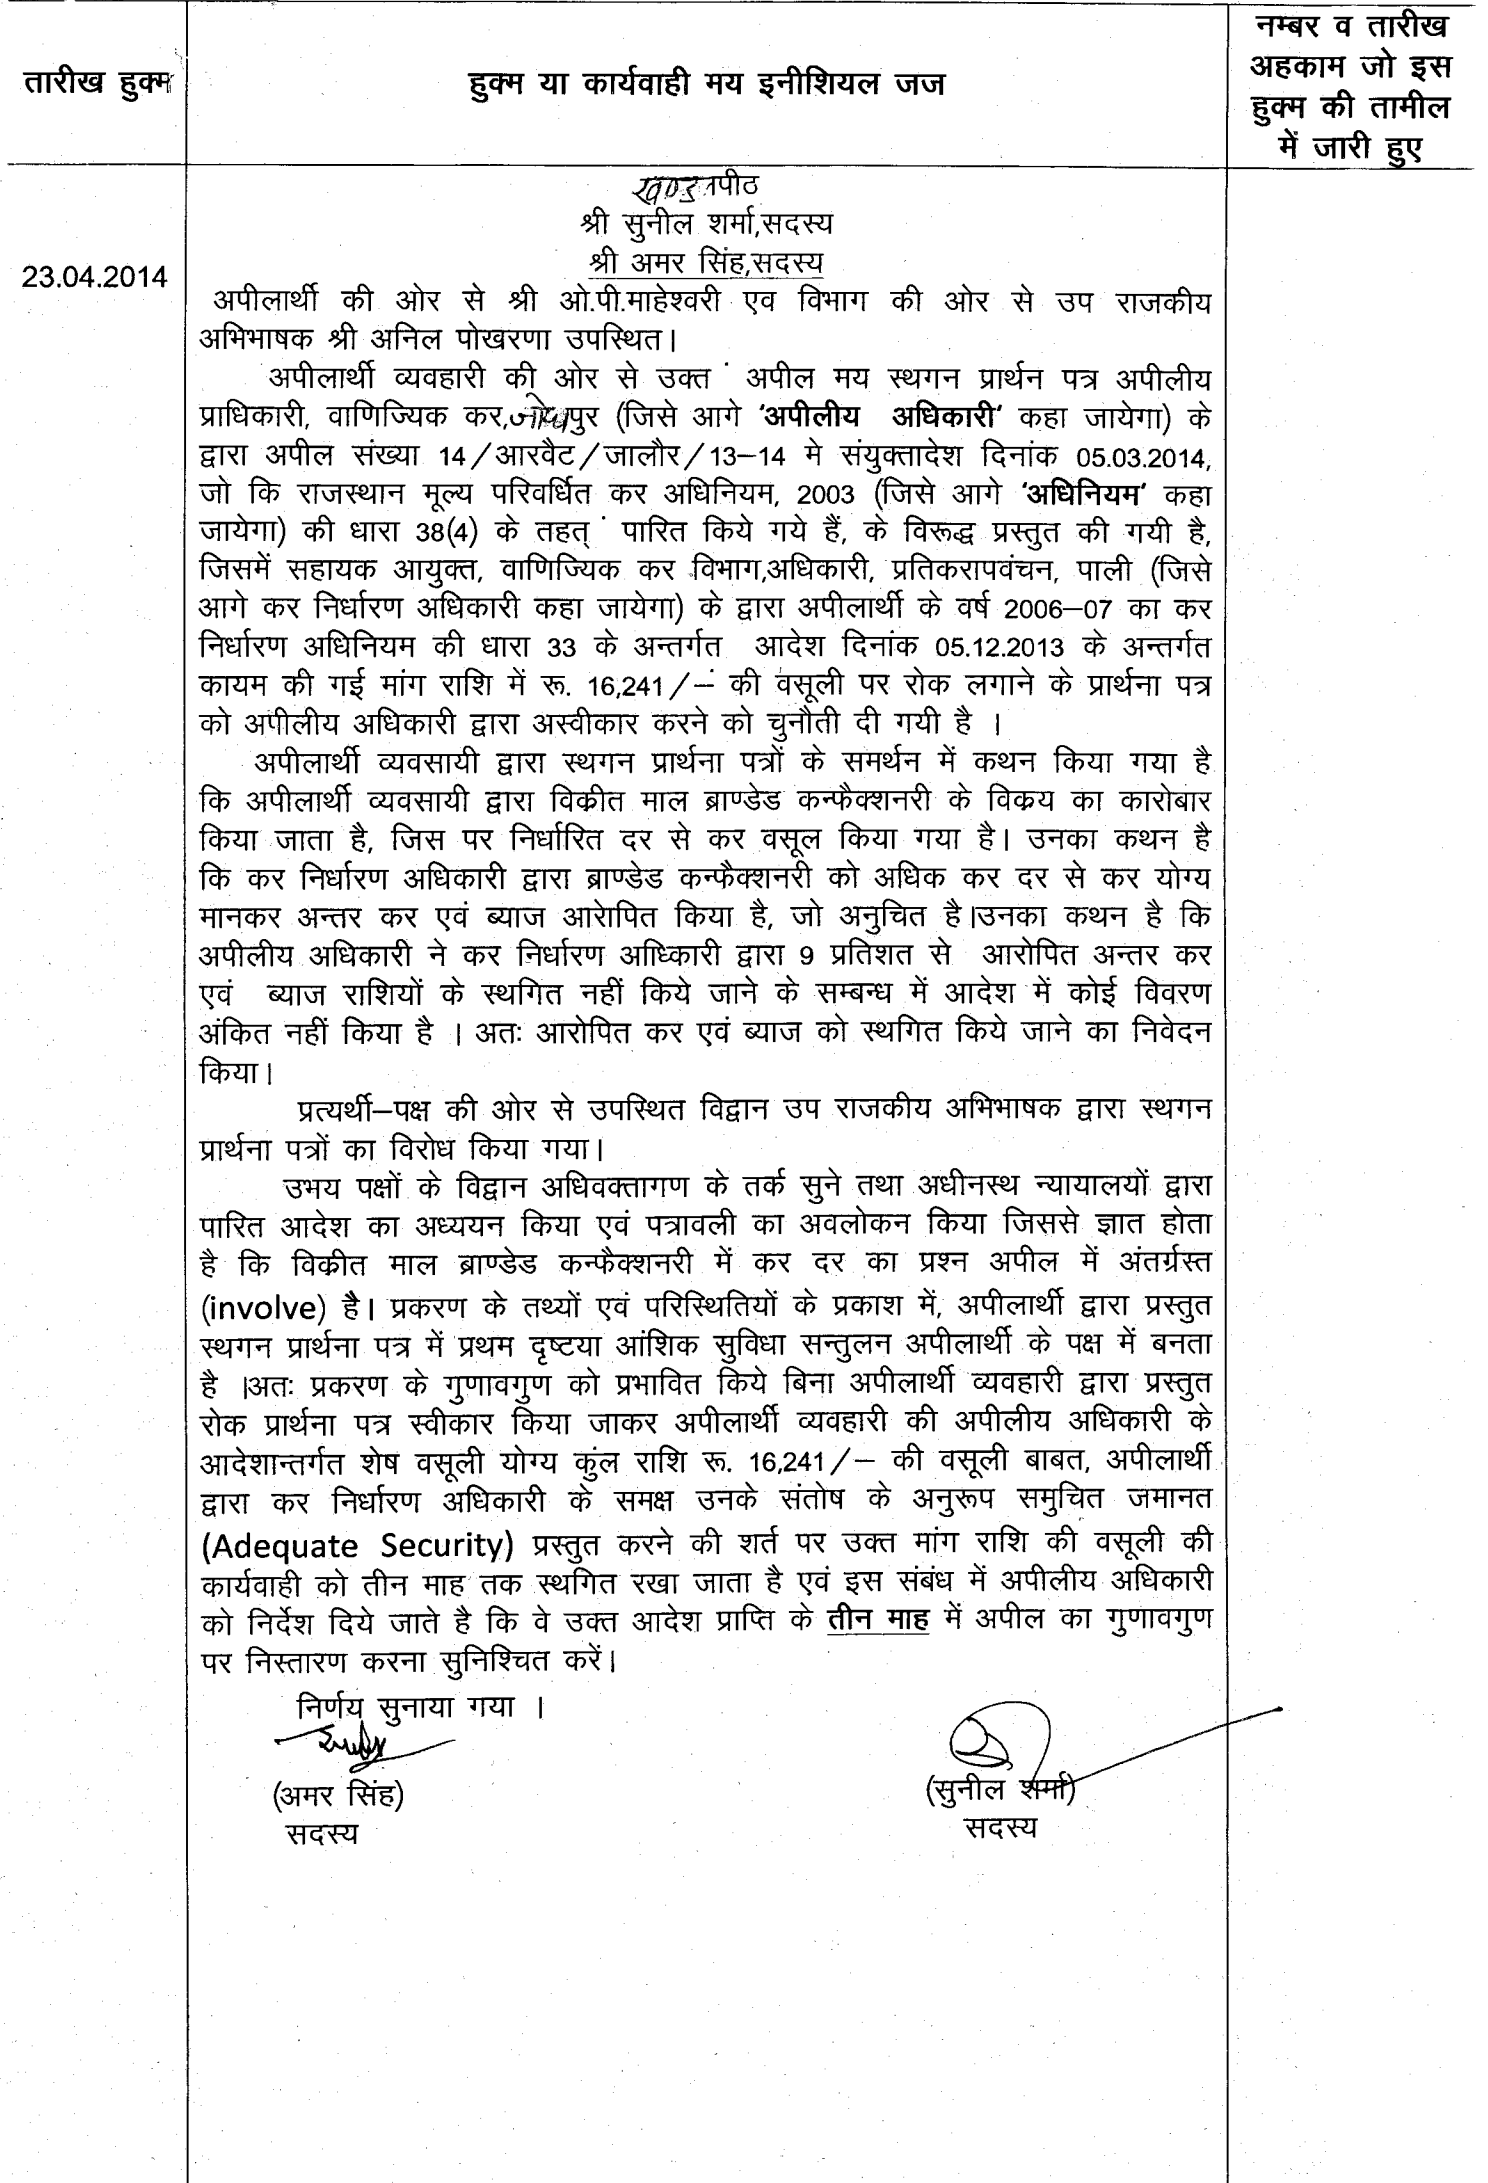 तारीख हुक्म
हुक्म या कार्यवाही मय इनीशियल जज
नम्बर व तारीख
अहकाम जो इस
हुक्म की तामील
में जारी हुए
खण्डपीठ
श्री सुनील शर्मा,सदस्य
श्री अमर सिंह,सदस्य
23.04.2014
अपीलार्थी की ओर से श्री ओ.पी.माहेश्वरी एव विभाग की ओर से उप राजकीय
अभिभाषक श्री अनिल पोखरणा उपस्थित।
अपीलार्थी व्यवहारी की ओर से उक्त अपील मय स्थगन प्रार्थन पत्र अपीलीय
प्राधिकारी, वाणिज्यिक कर,जोधपुर (जिसे आगे 'अपीलीय अधिकारी' कहा जायेगा) के
द्वारा अपील संख्या 14/आरवैट/जालौर/13–14 मे संयुक्तादेश दिनांक 05.03.2014,
जो कि राजस्थान मूल्य परिवर्धित कर अधिनियम, 2003 (जिसे आगे 'अधिनियम' कहा
जायेगा) की धारा 38(4) के तहत् पारित किये गये हैं, के विरूद्ध प्रस्तुत की गयी है,
जिसमें सहायक आयुक्त, वाणिज्यिक कर विभाग,अधिकारी, प्रतिकरापवंचन, पाली (जिसे
आगे कर निर्धारण अधिकारी कहा जायेगा) के द्वारा अपीलार्थी के वर्ष 2006–07 का कर
निर्धारण अधिनियम की धारा 33 के अन्तर्गत आदेश दिनांक 05.12.2013 के अन्तर्गत
कायम की गई मांग राशि में रू. 16,241/– की वसूली पर रोक लगाने के प्रार्थना पत्र
को अपीलीय अधिकारी द्वारा अस्वीकार करने को चुनौती दी गयी है ।
अपीलार्थी व्यवसायी द्वारा स्थगन प्रार्थना पत्रों के समर्थन में कथन किया गया है
कि अपीलार्थी व्यवसायी द्वारा विक्रीत माल ब्राण्डेड कन्फैक्शनरी के विक्रय का कारोबार
किया जाता है, जिस पर निर्धारित दर से कर वसूल किया गया है। उनका कथन है
कि कर निर्धारण अधिकारी द्वारा ब्राण्डेड कन्फैक्शनरी को अधिक कर दर से कर योग्य
मानकर अन्तर कर एवं ब्याज आरोपित किया है, जो अनुचित है।उनका कथन है कि
अपीलीय अधिकारी ने कर निर्धारण अधिकारी द्वारा 9 प्रतिशत से आरोपित अन्तर कर
एवं ब्याज राशियों के स्थगित नहीं किये जाने के सम्बन्ध में आदेश में कोई विवरण
अंकित नहीं किया है । अतः आरोपित कर एवं ब्याज को स्थगित किये जाने का निवेदन
किया।
प्रत्यर्थी–पक्ष की ओर से उपस्थित विद्वान उप राजकीय अभिभाषक द्वारा स्थगन
प्रार्थना पत्रों का विरोध किया गया।
उभय पक्षों के विद्वान अधिवक्तागण के तर्क सुने तथा अधीनस्थ न्यायालयों द्वारा
पारित आदेश का अध्ययन किया एवं पत्रावली का अवलोकन किया जिससे ज्ञात होता
है कि विक्रीत माल ब्राण्डेड कन्फैक्शनरी में कर दर का प्रश्न अपील में अंतर्ग्रस्त
(involve) है। प्रकरण के तथ्यों एवं परिस्थितियों के प्रकाश में, अपीलार्थी द्वारा प्रस्तुत
स्थगन प्रार्थना पत्र में प्रथम दृष्टया आंशिक सुविधा सन्तुलन अपीलार्थी के पक्ष में बनता
है ।अतः प्रकरण के गुणावगुण को प्रभावित किये बिना अपीलार्थी व्यवहारी द्वारा प्रस्तुत
रोक प्रार्थना पत्र स्वीकार किया जाकर अपीलार्थी व्यवहारी की अपीलीय अधिकारी के
आदेशान्तर्गत शेष वसूली योग्य कुल राशि रू. 16,241/– की वसूली बाबत, अपीलार्थी
द्वारा कर निर्धारण अधिकारी के समक्ष उनके संतोष के अनुरूप समुचित जमानत
(Adequate Security) प्रस्तुत करने की शर्त पर उक्त मांग राशि की वसूली की
कार्यवाही को तीन माह तक स्थगित रखा जाता है एवं इस संबंध में अपीलीय अधिकारी
को निर्देश दिये जाते है कि वे उक्त आदेश प्राप्ति के तीन माह में अपील का गुणावगुण
पर निस्तारण करना सुनिश्चित करें।
निर्णय सुनाया गया ।
(अमर सिंह)
सदस्य
(सुनील शर्मा)
सदस्य